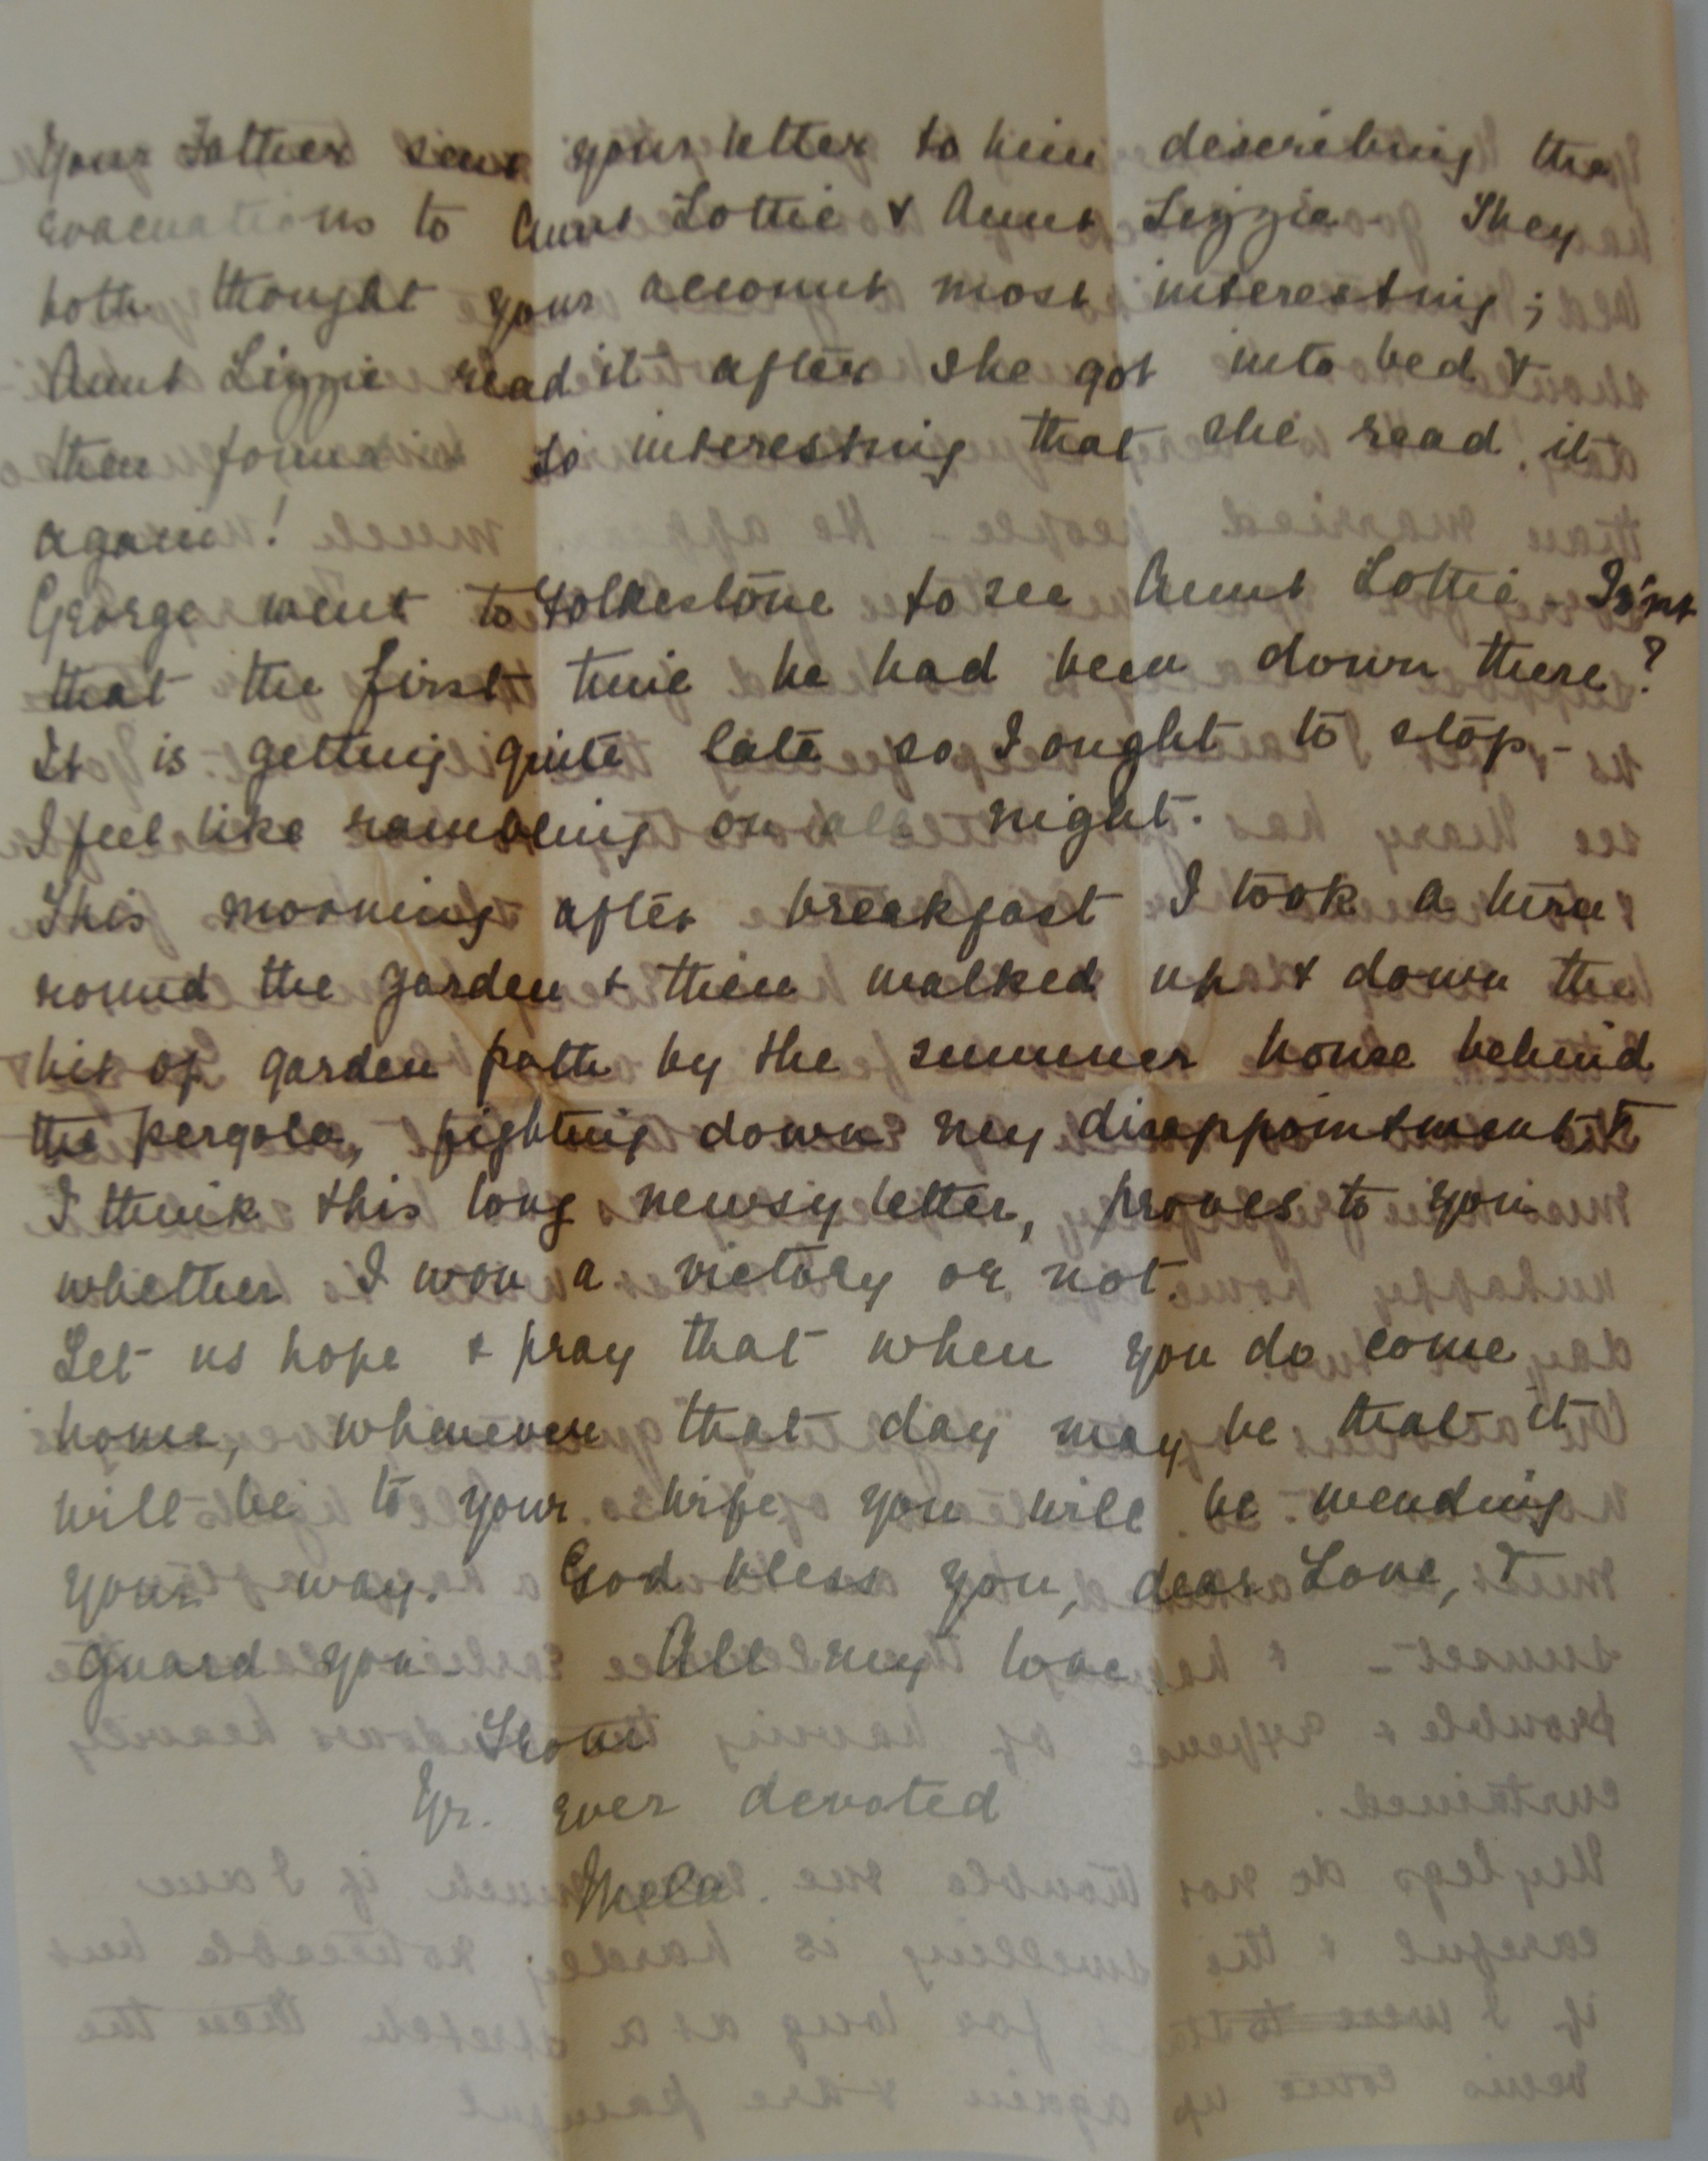 Your Father sent your letter to him describing the
evacuations to Aunt Lottie & Aunt Lizzie They
both thought your account most interesting;
Aunt Lizzie read it after she got into bed &
then found it so interesting that she read it
again!
George went to Folkestone to see Aunt Lottie - Is'nt
that the first time he had been down there?
It is getting quite late so I ought to stop -
I feel like rambling on all night.
This morning after breakfast I took a turn
round the garden & then walked up & down the
bit of garden path by the summer house behind
the pergola, fighting down my disappointment, &
I think this long newsy letter, proves to you
whether I won a victory or not.
Let us hope & pray that when you do come
home, whenever that day may be that it
will be to your wife you will be wending
your way. God bless you, dear Love, &
guard you - All my love
From
Yr. ever devoted